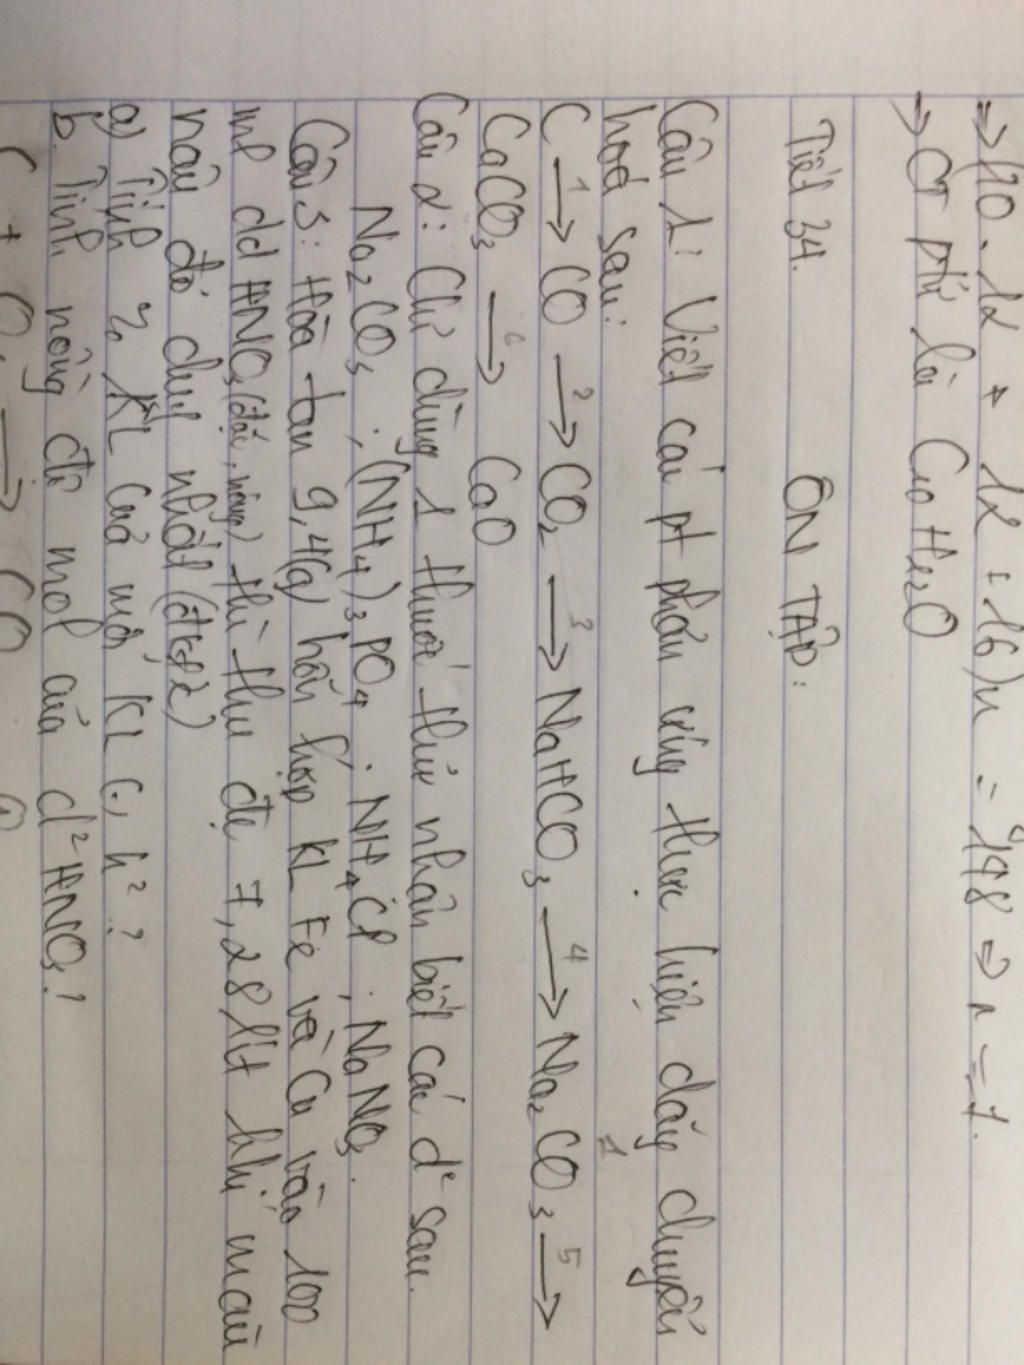 ⇒ (10.12 + 12 + 16)n = 148 ⇒ n = 1.
→ CT phtử là C10H12O
Tiết 34. ÔN TẬP:
Câu 1: Viết các pt phản ứng thực hiện dãy chuyển
hoá sau:
C →1 CO →2 CO2 →3 NaHCO3 →4 Na2CO3 →5
CaCO3 →6 CaO
Câu 2: Chỉ dùng 1 thuốc thử nhận biết các d² sau.
Na2CO3 ; (NH4)3PO4 ; NH4Cl ; NaNO3.
Câu 3: Hòa tan 9,4(g) hỗn hợp KL Fe và Cu vào 100
ml dd HNO3 (đặc, nóng) thì thu đc 7,28 lít khí màu
nâu đỏ duy nhất (đktc)
a) Tính % KL của mỗi KL c, h²?
b. Tính nồng độ mol của d² HNO3?
C + O2 → CO